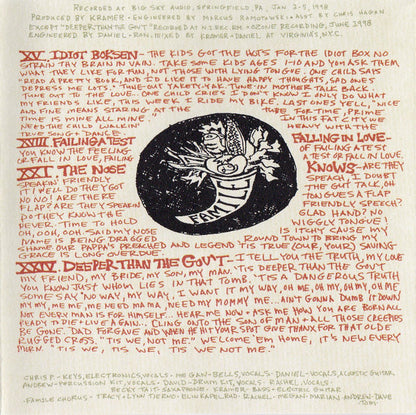 RECORDED AT BIG SKY AUDIO, SPRINGFIELD, PA, JAN 2-5, 1998
PRODUCED BY KRAMER - ENGINEERED BY MARIUS - ASST BY CHRIS HAGAN
EXCEPT "DEEPER THAN THE GOV'T" RECORDED AT N.J. REC RM - OZONE RECORDING, JUNE 1998
ENGINEERED BY DANIEL + RON. MIXED BY KRAMER + DANIEL AT VIRGINIA'S, NYC.
XV. IDIOT BOKSEN - THE KIDS GOT THE HOTS FOR THE IDIOT BOX NO
STRAIN THY BRAIN IN VAIN. TAKE SOME KIDS AGES 1-10 AND YOU ASK THEM
WHAT THEY LIKE FOR FUN, NOT THOSE WITH LYING TONGUE. ONE CHILD SAYS
"READ A PRETTY BOOK, AND I'D LIKE IT TO HAVE HAPPY THOUGHTS, SAD ONES
DEPRESS ME LOTS." TUNE-OUT YAKETY-YAK. TUNE-IN MOTHER TALK BACK
TUNE OUT TO THE LOVE. ONE CHILD CRIES I DON'T KNOW I ONLY DO WHAT
MY FRIENDS LIKE, THIS WEEK I RIDE MY BIKE. LAST ONES YELL, "NICE
AND FINE MEANS STARING AT THE TUBE FOR TIME, PRIME
TIME IS MINE ALL MINE IN THIS FAT CITY WE
NEED THE CHILD WALKIN' HEAVY WITH THE
TRUE SONG + DANCE.
XVIII FAILING A TEST FALLING IN LOVE -
YOU KNOW THE FEELING OF FAILING A TEST
OR FALL IN LOVE, FAILING A TEST OR FALL IN LOVE.
XXI. THE NOSE KNOWS - ARE THEY
SPEAKIN' FRIENDLY SPEACH, I DOUBT
IT! WELL DO THEY GOT THE GUT TALK, OH
NO NO! ARE THERE TONGUES A FLAT
FLAP ARE THEY SPEAKIN FRIENDLY SPEECH?
DO THEY KNOW THE GLAD HAND? NO
DEVER. TIME TO HOLD WIGGLY TONGUE
OH, OOH, OOH. SAID MY NOSE IS ITCHY CAUSE MY
NAME IS BEING DRAGGED ROUND TOWN TO BRING MY
SHAME OUR PAPPA'S PREACHED AND LEGEND TIS TRUE (OUR, YOUR) SAVING
GRACE IS LONG OVERDUE.
FAMILEE
XXIV. DEEPER THAN THE GOV'T - I TELL YOU THE TRUTH, MY LOVE
MY FRIEND, MY BRIDE, MY SON, MY MAN. 'TIS DEEPER THAN THE GOVT
YOU KNOW JUST WHOM LIES IN THAT TOMB. 'TIS A DANGEROUS TRUTH
SOME SAY "NO WAY, MY WAY, I WANT IT MY WAY, OH ME, OH MY, OH MY, OH ME
MY MY, ME ME, ME NEED MAMA, NEED MY MOMMY ME... AIN'T GONNA DUMB IT DOWN
NOT EVERY MAN IS FOR HIMSELF... HEAR ME NOW + ASK ME HOW YOU ARE BORN ALL
READY TO DIE + LIVE AGAIN... CLING ONTO THE SON OF MAN + ALL THOSE CREEPIES
BE GONE. DAD FORGAVE AND WHEN HE HIT YOUR SPOT GIVE THANX FOR THAT OLDE
RUGGED CROSS. "'TIS WE, NOT ME." WELCOME 'EM HOME, IT'S NEW EVERY
MORN. "'TIS WE, 'TIS WE, 'TIS WE NOT ME."
CHRIS P - KEYS, ELECTRONICS, VOCALS - MEGAN - BELLS, VOCALS - DANIEL - VOCALS, ACOUSTIC GUITAR
ANDREW - PERCUSSION KIT, VOCALS - DAVID - DRUM KIT, VOCALS - RACHEL, VOCALS -
BECKY TAIT - SAXAPHONE - KRAMER - BASS + ELECTRIC GUITAR
FAMILE CHORUS - TRACY + LYNN, TIERNO - ELIN, KAPEL, ROD - RACHEL - MEGAN - MARIAN, ANDREW, DAVE
TOM.